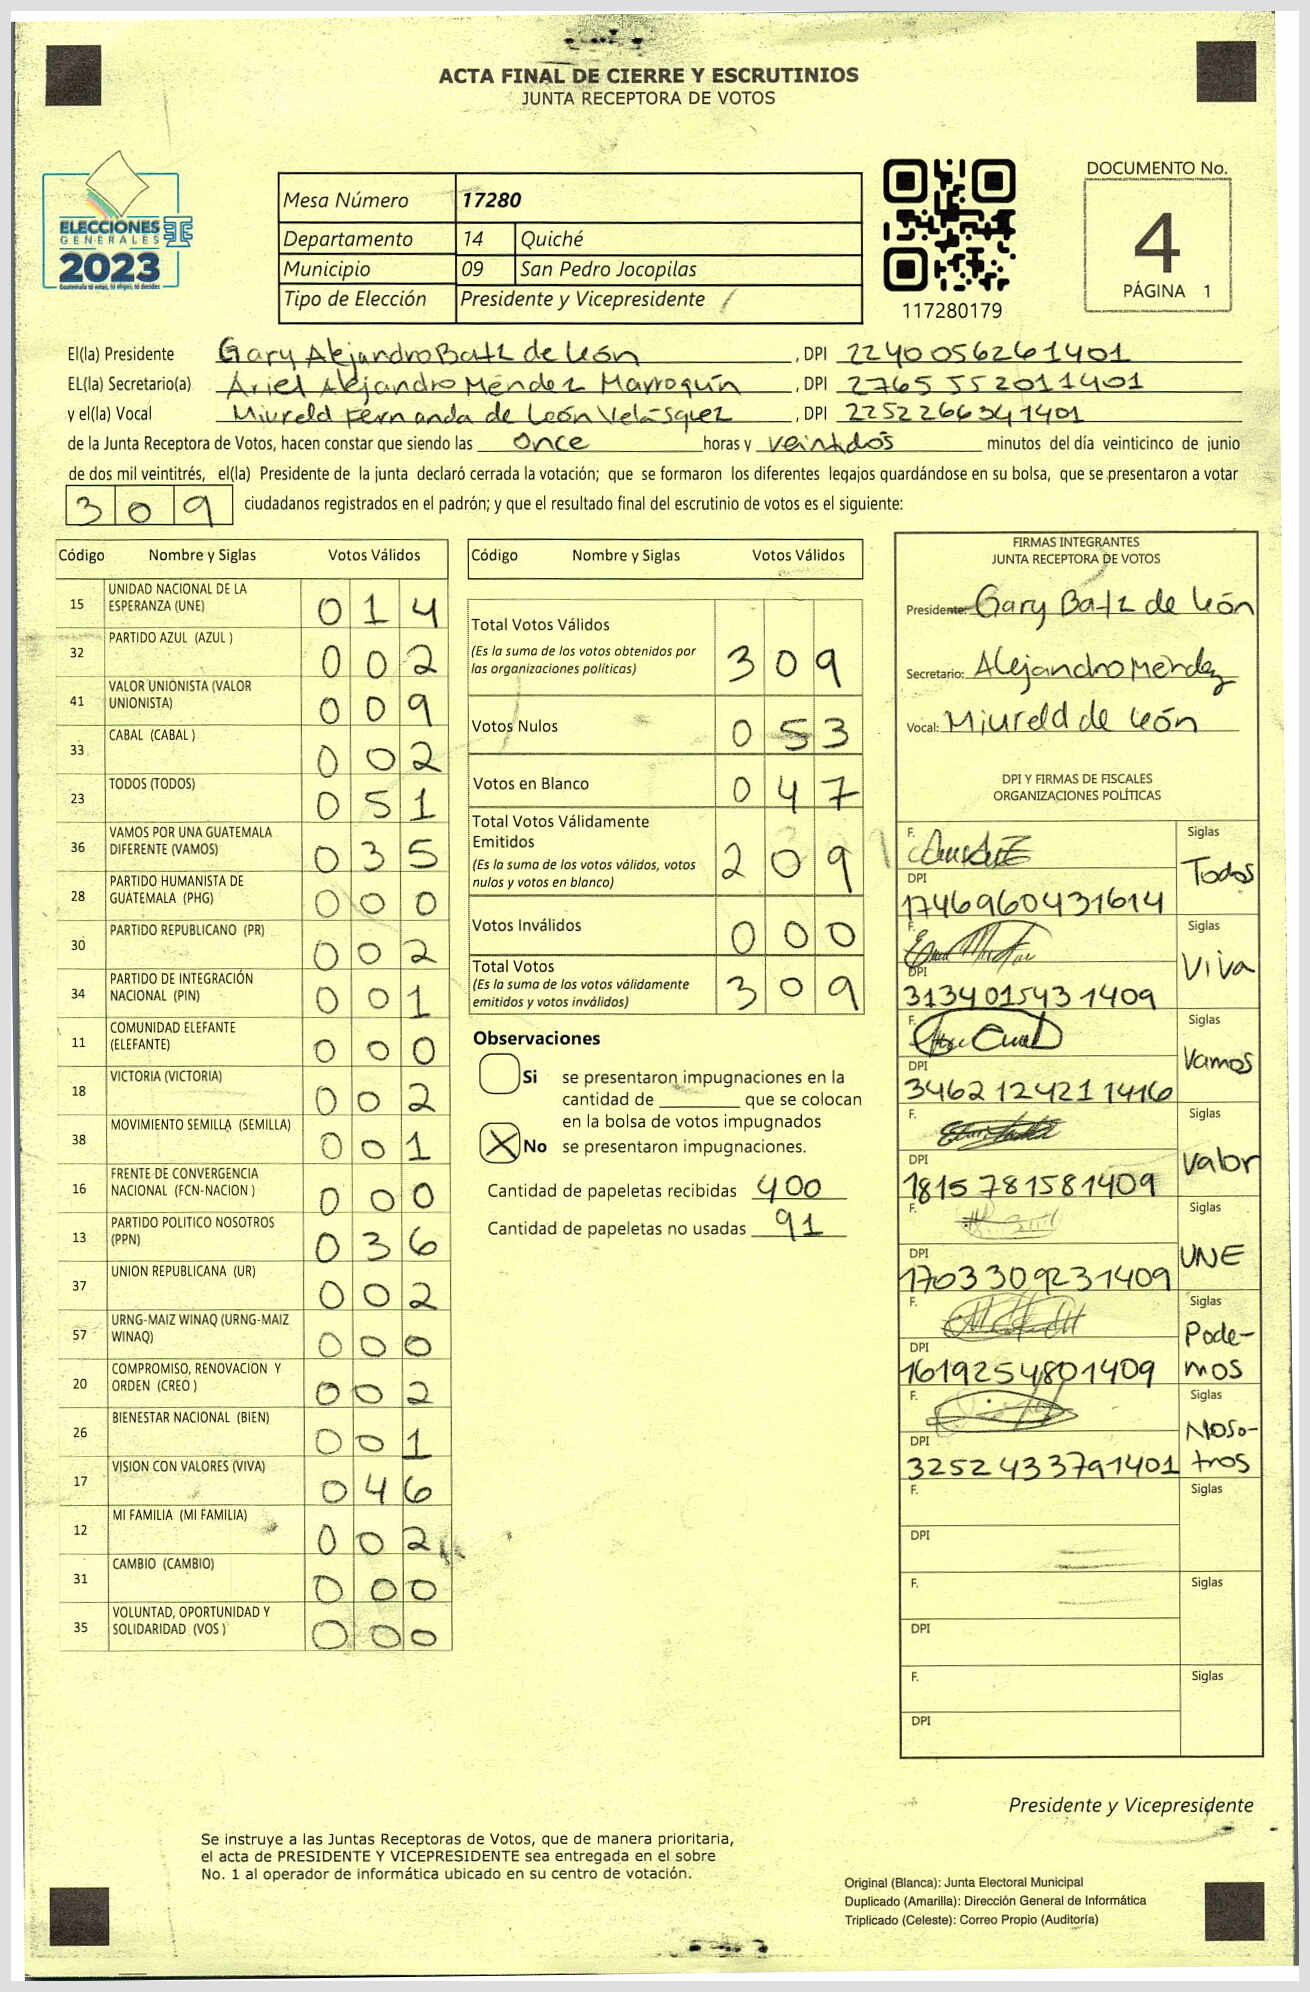 ACTA FINAL DE CIERRE Y ESCRUTINIOS
JUNTA RECEPTORA DE VOTOS
ELECCIONES
GENERALES
2023
Guatemala tú estás, tú eliges, tú decides
Mesa Número 17280
Departamento 14 Quiché
Municipio 09 San Pedro Jocopilas
Tipo de Elección Presidente y Vicepresidente
117280179
DOCUMENTO No.
4
PÁGINA 1
El(la) Presidente Gary Alejandro Batz de León , DPI 2240056261401
EL(la) Secretario(a) Ariel Alejandro Méndez Marroquín , DPI 2765552011401
y el(la) Vocal Miureld Fernanda de León Velásquez , DPI 2252266341401
de la Junta Receptora de Votos, hacen constar que siendo las once horas y veintidós minutos del día veinticinco de junio
de dos mil veintitrés, el(la) Presidente de la junta declaró cerrada la votación; que se formaron los diferentes legajos quardándose en su bolsa, que se presentaron a votar
309 ciudadanos registrados en el padrón; y que el resultado final del escrutinio de votos es el siguiente:
Código Nombre y Siglas Votos Válidos
15 UNIDAD NACIONAL DE LA ESPERANZA (UNE) 014
32 PARTIDO AZUL (AZUL ) 002
41 VALOR UNIONISTA (VALOR UNIONISTA) 009
33 CABAL (CABAL ) 002
23 TODOS (TODOS) 051
36 VAMOS POR UNA GUATEMALA DIFERENTE (VAMOS) 035
28 PARTIDO HUMANISTA DE GUATEMALA (PHG) 000
30 PARTIDO REPUBLICANO (PR) 002
34 PARTIDO DE INTEGRACIÓN NACIONAL (PIN) 001
11 COMUNIDAD ELEFANTE (ELEFANTE) 000
18 VICTORIA (VICTORIA) 002
38 MOVIMIENTO SEMILLA (SEMILLA) 001
16 FRENTE DE CONVERGENCIA NACIONAL (FCN-NACION ) 000
13 PARTIDO POLITICO NOSOTROS (PPN) 036
37 UNION REPUBLICANA (UR) 002
57 URNG-MAIZ WINAQ (URNG-MAIZ WINAQ) 000
20 COMPROMISO, RENOVACION Y ORDEN (CREO ) 002
26 BIENESTAR NACIONAL (BIEN) 001
17 VISION CON VALORES (VIVA) 046
12 MI FAMILIA (MI FAMILIA) 002
31 CAMBIO (CAMBIO) 000
35 VOLUNTAD, OPORTUNIDAD Y SOLIDARIDAD (VOS ) 000
Código Nombre y Siglas Votos Válidos
Total Votos Válidos
(Es la suma de los votos obtenidos por
las organizaciones políticas) 309
Votos Nulos 053
Votos en Blanco 047
Total Votos Válidamente
Emitidos
(Es la suma de los votos válidos, votos
nulos y votos en blanco) 209
Votos Inválidos 000
Total Votos
(Es la suma de los votos válidamente
emitidos y votos inválidos) 309
Observaciones
Si se presentaron impugnaciones en la
cantidad de ________ que se colocan
en la bolsa de votos impugnados
X No se presentaron impugnaciones.
Cantidad de papeletas recibidas 400
Cantidad de papeletas no usadas 91
FIRMAS INTEGRANTES
JUNTA RECEPTORA DE VOTOS
Presidente: Gary Batz de León
Secretario: Alejandro Méndez
Vocal: Miureld de León
DPI Y FIRMAS DE FISCALES
ORGANIZACIONES POLÍTICAS
F. Siglas
Todos
DPI
1746960431614
F. Siglas
Viva
DPI
3134015431409
F. Siglas
Vamos
DPI
3462124211416
F. Siglas
Valor
DPI
1815781581409
F. Siglas
UNE
DPI
1703309231409
F. Siglas
Pode-
DPI
1619254801409 mos
F. Siglas
Noso-
DPI
3252433791401 tros
F. Siglas
DPI
F. Siglas
DPI
F. Siglas
DPI
Presidente y Vicepresidente
Se instruye a las Juntas Receptoras de Votos, que de manera prioritaria,
el acta de PRESIDENTE Y VICEPRESIDENTE sea entregada en el sobre
No. 1 al operador de informática ubicado en su centro de votación.
Original (Blanca): Junta Electoral Municipal
Duplicado (Amarilla): Dirección General de Informática
Triplicado (Celeste): Correo Propio (Auditoría)